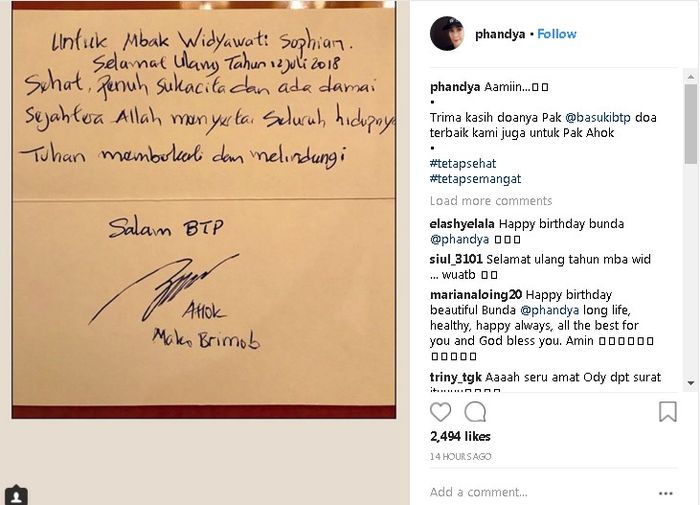 Untuk Mbak Widyawati Sophian.
Selamat Ulang Tahun 12 Juli 2018
Sehat, Penuh sukacita dan ada damai
Sejahtera Allah menyertai Seluruh hidupnya
Tuhan memberkati dan melindungi
Salam BTP
Ahok
Mako Brimob
phandya • Follow
phandya Aamiin...
•
Trima kasih doanya Pak @basukibtp doa
terbaik kami juga untuk Pak Ahok
•
#tetapsehat
#tetapsemangat
Load more comments
elashyelala Happy birthday bunda
@phandya
siul_3101 Selamat ulang tahun mba wid
... wuatb
marianaloing20 Happy birthday
beautiful Bunda @phandya long life,
healthy, happy always, all the best for
you and God bless you. Amin
triny_tgk Aaaah seru amat Ody dpt surat
2,494 likes
14 HOURS AGO
Add a comment...